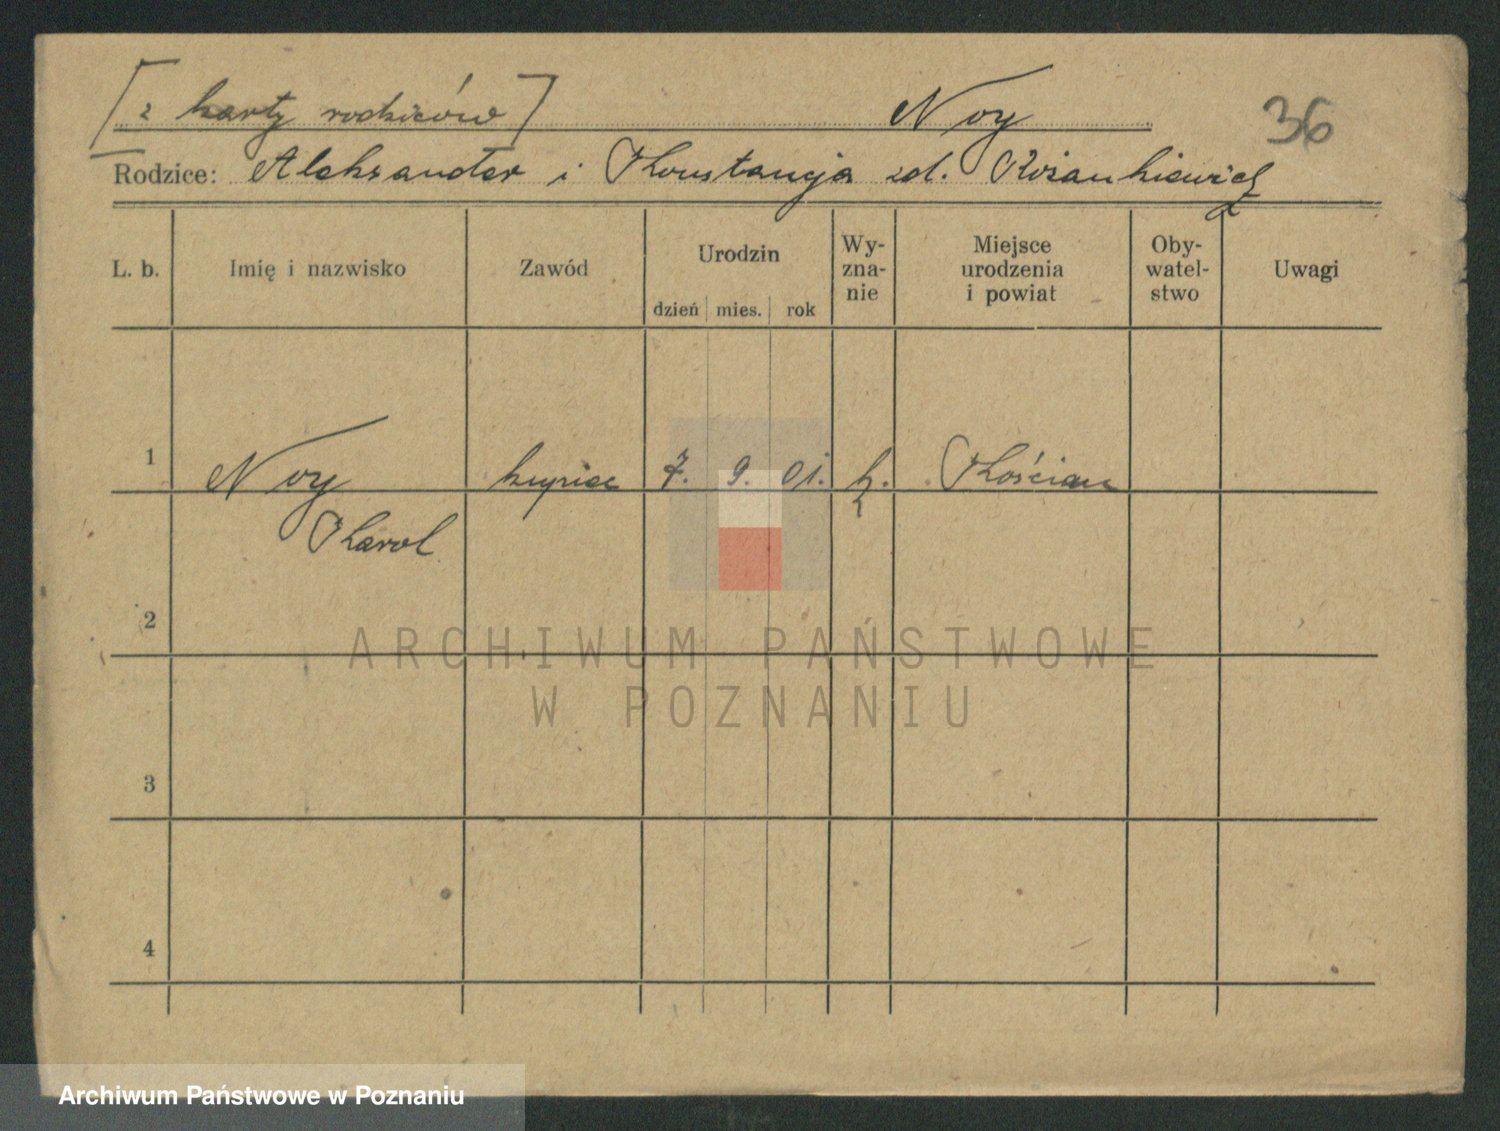 [z karty rodziców] Noy 36
Rodzice: Aleksander i Konstancja zd. Rożankiewicz
L. b. Imię i nazwisko Zawód Urodzin dzień mies. rok Wy-zna-nie Miejsce urodzenia i powiat Oby-watel-stwo Uwagi
1 Noy kupiec 7. 9. 01. k. Kościan
Karol
2
ARCHIWUM PAŃSTWOWE
W POZNANIU
3
4
Archiwum Państwowe w Poznaniu